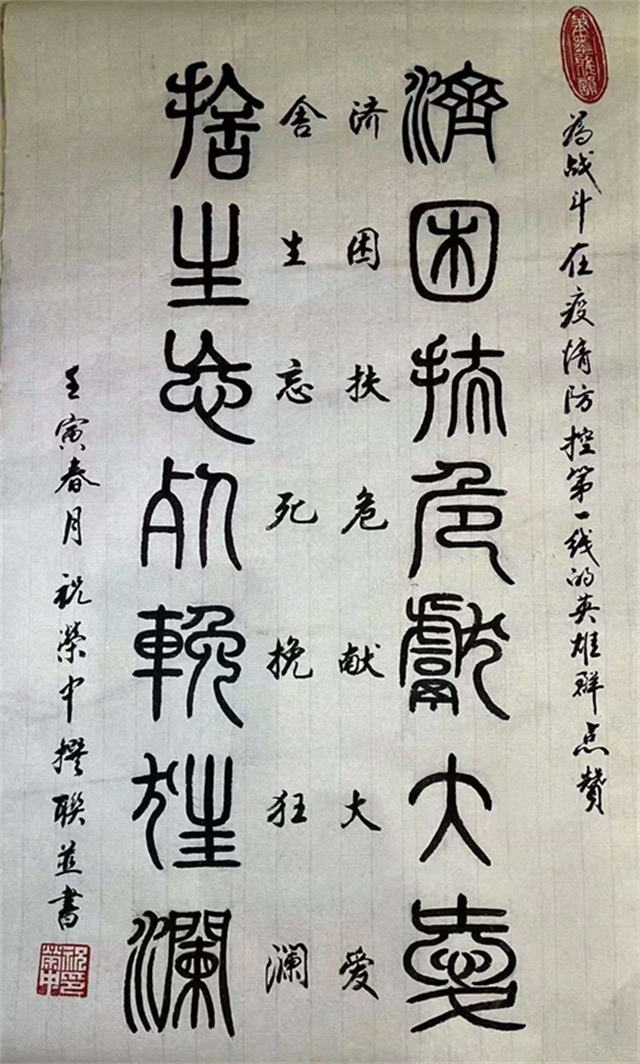 为战斗在疫情防控第一线的英雄群点赞
濟困扶危獻大愛
济困扶危献大爱
舍生忘死挽狂澜
捨生忘死輓狂瀾
壬寅春月祝荣中撰联並书